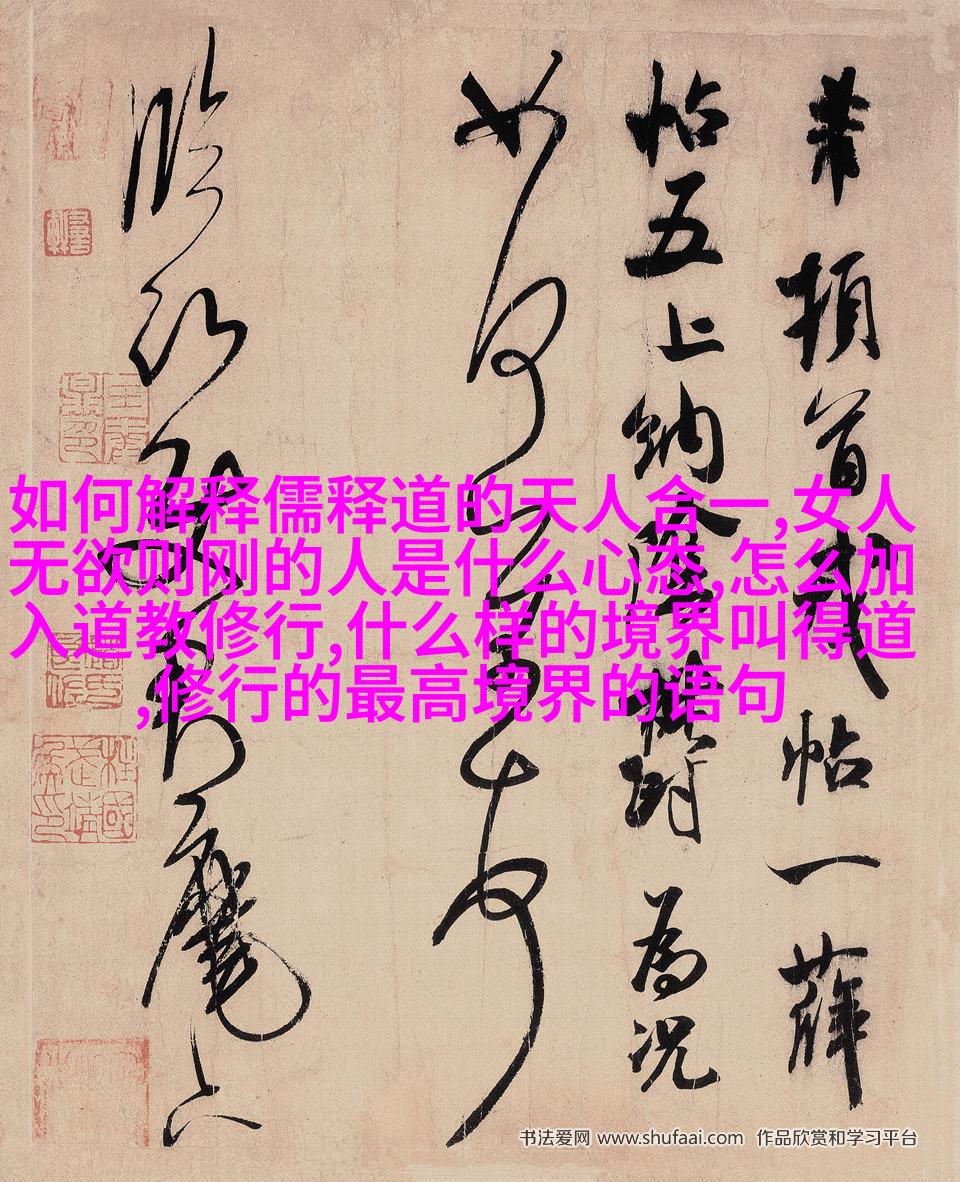 芾頓首戎帖一薛
帖五上納陰鬱為況
如何芾頓首
臨沂使君麾下
如何解释儒释道的天人合一,女人
无欲则刚的人是什么心态,怎么加
入道教修行,什么样的境界叫得道
,修行的最高境界的语句
书法爱网 www.shufaai.com 作品欣赏和学习平台